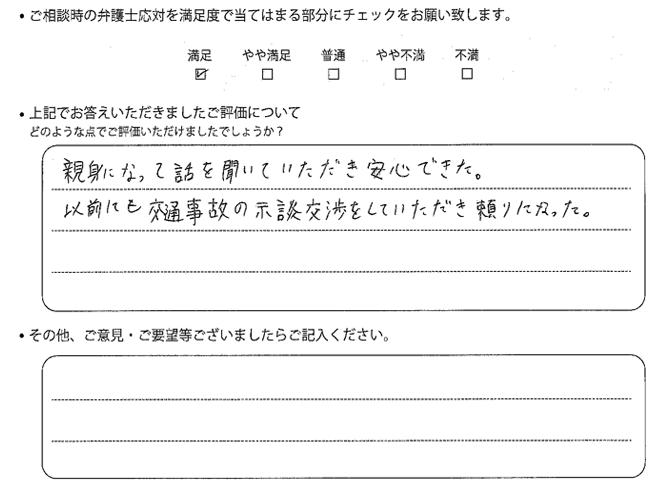 • ご相談時の弁護士応対を満足度で当てはまる部分にチェックをお願い致します。
満足 やや満足 普通 やや不満 不満
☑ □ □ □ □
• 上記でお答えいただきましたご評価について
どのような点でご評価いただけましたでしょうか？
親身になって話を聞いていただき安心できた。
以前にも交通事故の示談交渉をしていただき頼りになった。
• その他、ご意見・ご要望等ございましたらご記入ください。